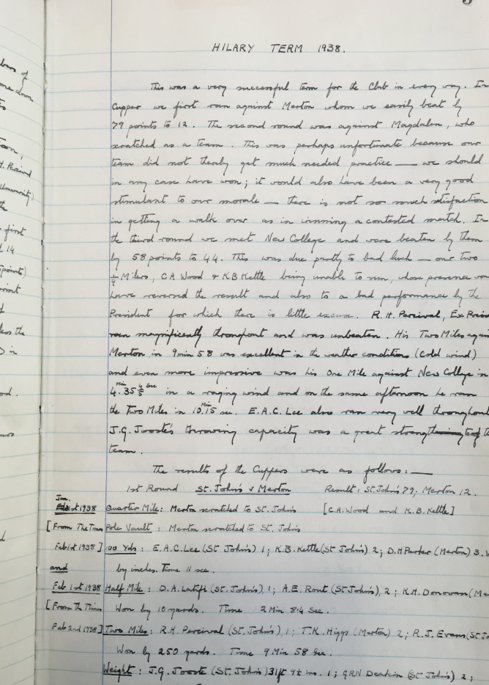 HILARY TERM 1938.
This was a very successful term for the Club in every way. In
Cuppers we first ran against Merton whom we easily beat by
79 points to 12. The second round was against Magdalen, who
scratched as a team. This was perhaps unfortunate because our
team did not thereby get much needed practice — we should
in any case have won; it would also have been a very good
stimulant to our morale — there is not so much satisfaction
in getting a walk over as in winning a contested match. In
the third round we met New College and were beaten by them
by 58 points to 44. This was due partly to bad luck — our two
¼ Milers, C.A. Wood & K.B. Kettle being unable to run, whose presence
have reversed the result and also to a bad performance by the
President for which there is little excuse. R.H. Percival, Ex
ran magnificently throughout and was unbeaten. His Two Miles
Merton in 9 min 58 was excellent in the weather conditions (Cold wind)
and even more impressive was his One Mile against New College in
4. 35 in a raging wind and on the same afternoon he ran
the two Miles in 10.15 sec. E.A.C. Lee also ran very well throughout
J.G. Jooste's throwing capacity was a great strengthening to the
team.
The results of the Cuppers were as follows:—
1st Round St. John's v Merton Result: St. John's 79; Merton 12.
1938 Quarter Mile: Merton scratched to St. John's [C.A. Wood and K.B. Kettle]
[From The Times Pole Vault: Merton scratched to St. John's
Feb 1st 1938] 100 Yds: E.A.C. Lee (St. John's) 1; K.B. Kettle (St. John's) 2; D.H. Parker (Merton) 3.
and by inches. Time 11 sec.
Feb 1st 1938 Half Mile: D.A. (St. John's), 1; A.E. (St. John's), 2; K.H. Donovan
[From The Times Won by 10 yards. Time 2 Min sec.
Feb 2nd 1938] Two Miles: R.H. Percival (St. John's), 1; T.K. Higgs (Merton) 2; R.J. Evans
Won by 250 yards. Time 9 Min 58 Sec.
Weight: J.G. Jooste (St. John's) 31ft 1; (St. John's) 2;